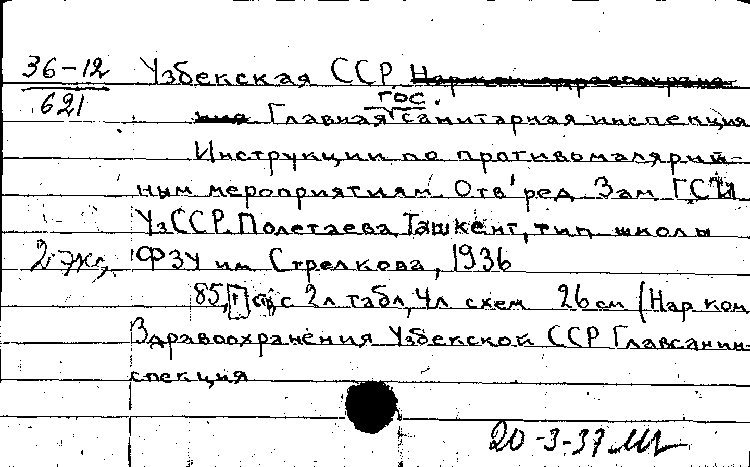 36-12
621
Узбекская ССР Наркомздравоохране
ния Главная гос. санитарная инспекция
Инструкции по противомалярий-
ным мероприятиям Отв. ред. Зам ГСИ
УзССР Полетаева, Ташкент, тип. школы
2 экз. ФЗУ им Стрелкова, 1936
85, [1] с., с 2л табл, 4л схем 26 см (Нар ком
Здравоохранения Узбекской ССР Главсанин-
спекция
20-3-37